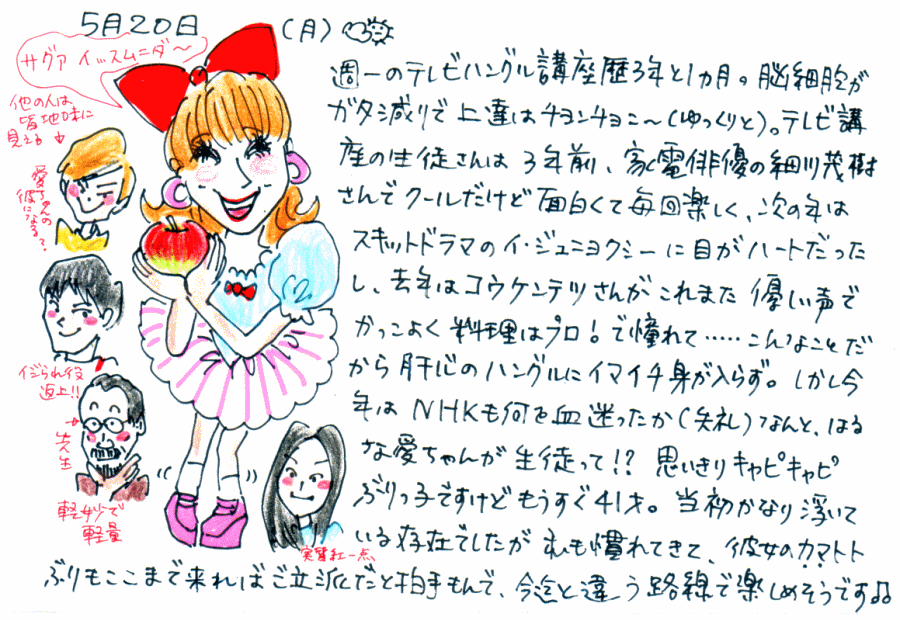 5月20日 (月)
サグァ イッスムニダ～
他の人は
皆地味に
見える
愛ちゃんの
彼になる?
イジられ役
返上!!
先生
軽妙で
軽量
実質紅一点
週一のテレビハングル講座歴3年と1カ月。脳細胞が
ガタ減りで上達はチョンチョニ～(ゆっくりと)。テレビ講
座の生徒さんは3年前、家電俳優の細川茂樹
さんでクールだけど面白くて毎回楽しく、次の年は
スキットドラマのイ・ジュニョクシーに目がハートだった
し、去年はコウケンテツさんがこれまた優しい声で
かっこよく料理はプロ!で憧れて……こんなことだ
から肝心のハングルにイマイチ身が入らず。しかし今
年はNHKも何を血迷ったか(失礼)なんと、はる
な愛ちゃんが生徒って!? 思いきりキャピキャピ
ぶりっ子ですけどもうすぐ41才。当初かなり浮いて
いる存在でしたが私も慣れてきて、彼女のカマトト
ぶりもここまで来ればご立派だと拍手もんで、今迄と違う路線で楽しめそうです♫